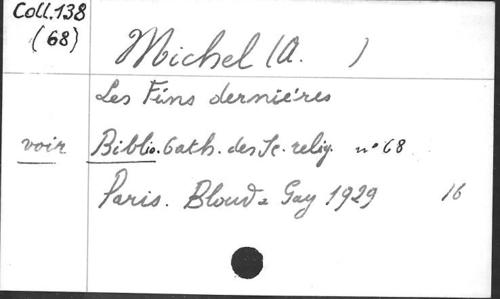 Coll.138
(68)
Michel (A. )
Les Fins dernières
voir Biblio.Cath. des Sc. relig. n° 68
Paris. Bloud & Gay 1929 16